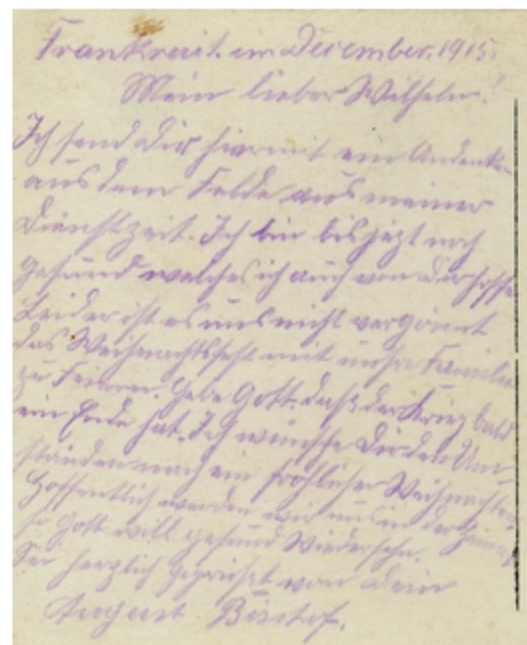 Frankreich im Dezember. 1915.
Mein lieber Wilhelm!
Ich send Dir hiermit ein Andenken
aus dem Felde aus meiner
Dienstzeit. Ich bin bis jezt noch
gesund welches ich auch von Dir hoffe
Leider ist es uns nicht vergönnt
das Weihnachtsfest mit unsre Familie
zu Feiern. Gebe Gott. daß der Krieg bald
ein Ende hat. Ich wünsche Dir den Um-
ständen nach ein fröhliches Weihnachten
Hoffentlich werden wir uns in der Heimat
so Gott will gesund Wiedersehn.
Sei herzlich gegrüßt von Dein
August